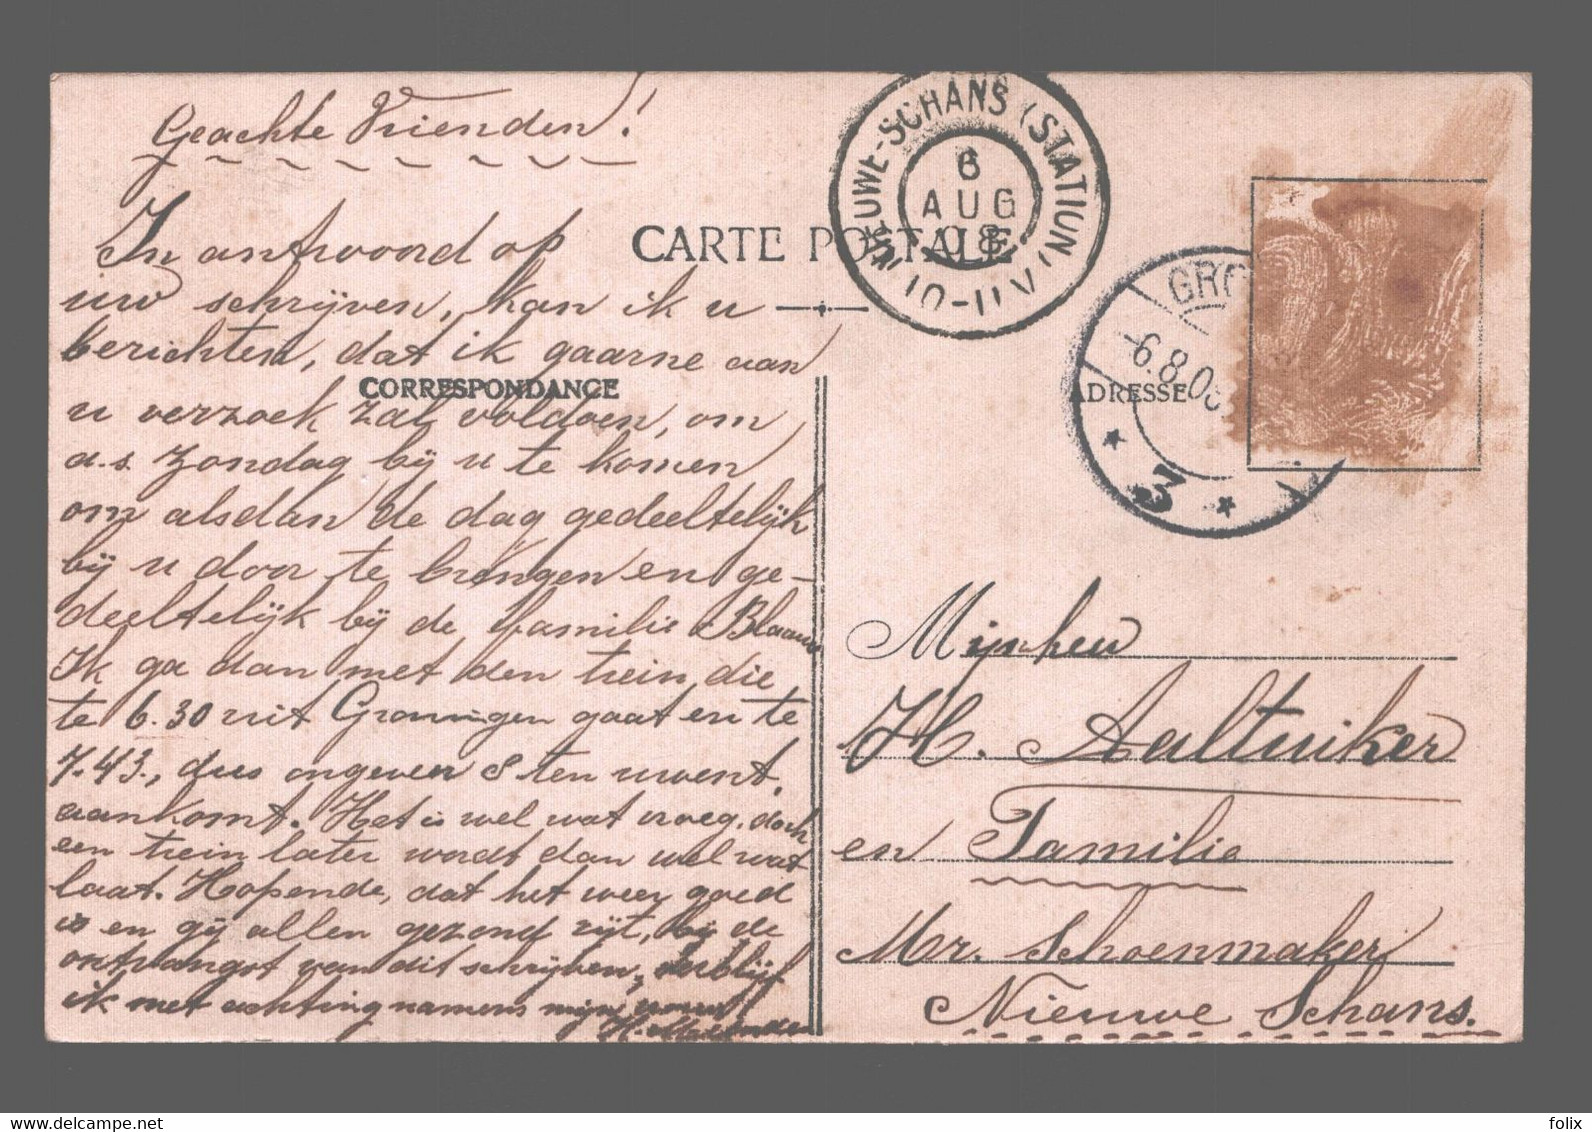 Geachte Vrienden!
In antwoord op
uw schrijven, kan ik u
berichten, dat ik gaarne aan
u verzoek zal voldoen, om
a.s. Zondag bij u te komen
om alsdan de dag gedeeltelijk
bij u door te brengen en ge-
deeltelijk bij de familie Blaauw
Ik ga dan met den trein, die
te 6.30 uit Groningen gaat en te
7.43., dus ongeveer 8 ten uwent,
aankomt. Het is wel wat vroeg, doch
een trein later wordt dan wel wat
laat. Hopende, dat het weer goed
is en gij allen gezond zijt, bij de
ontvangst van dit schrijven, verblijf
ik met achting namens mijn vrouw
CARTE POSTALE
CORRESPONDANCE
ADRESSE
NIEUWE-SCHANS (STATION)
6
AUG
08
10-11 V
GRO
6.8.0
3
Mijnheer
H. Aeltuiker
en Familie
Mr. Schoenmaker
Nieuwe Schans.
folix